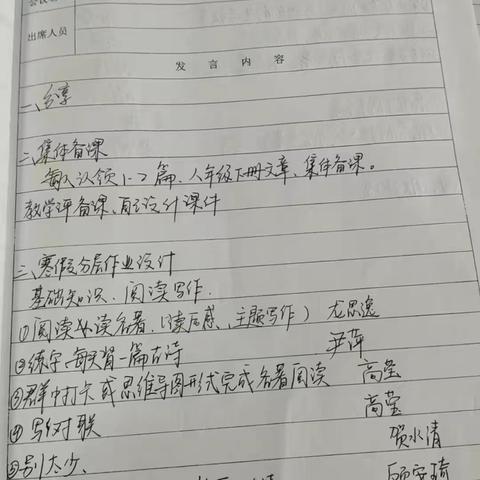 出席人员
发 言 内 容
一、分享
二、集体备课
每人认领1-2篇、八年级下册文章、集体备课。
教学评备课、自己设计课件
三、寒假分层作业设计
基础知识、阅读写作.
①阅读必读名著、(读后感、主题写作) 尤思逸
②练字、每天背一篇古诗 尹萍
③群中打卡或思维导图形式完成名著阅读 高莹
④写对联 高莹
贺水清
⑤别太少、